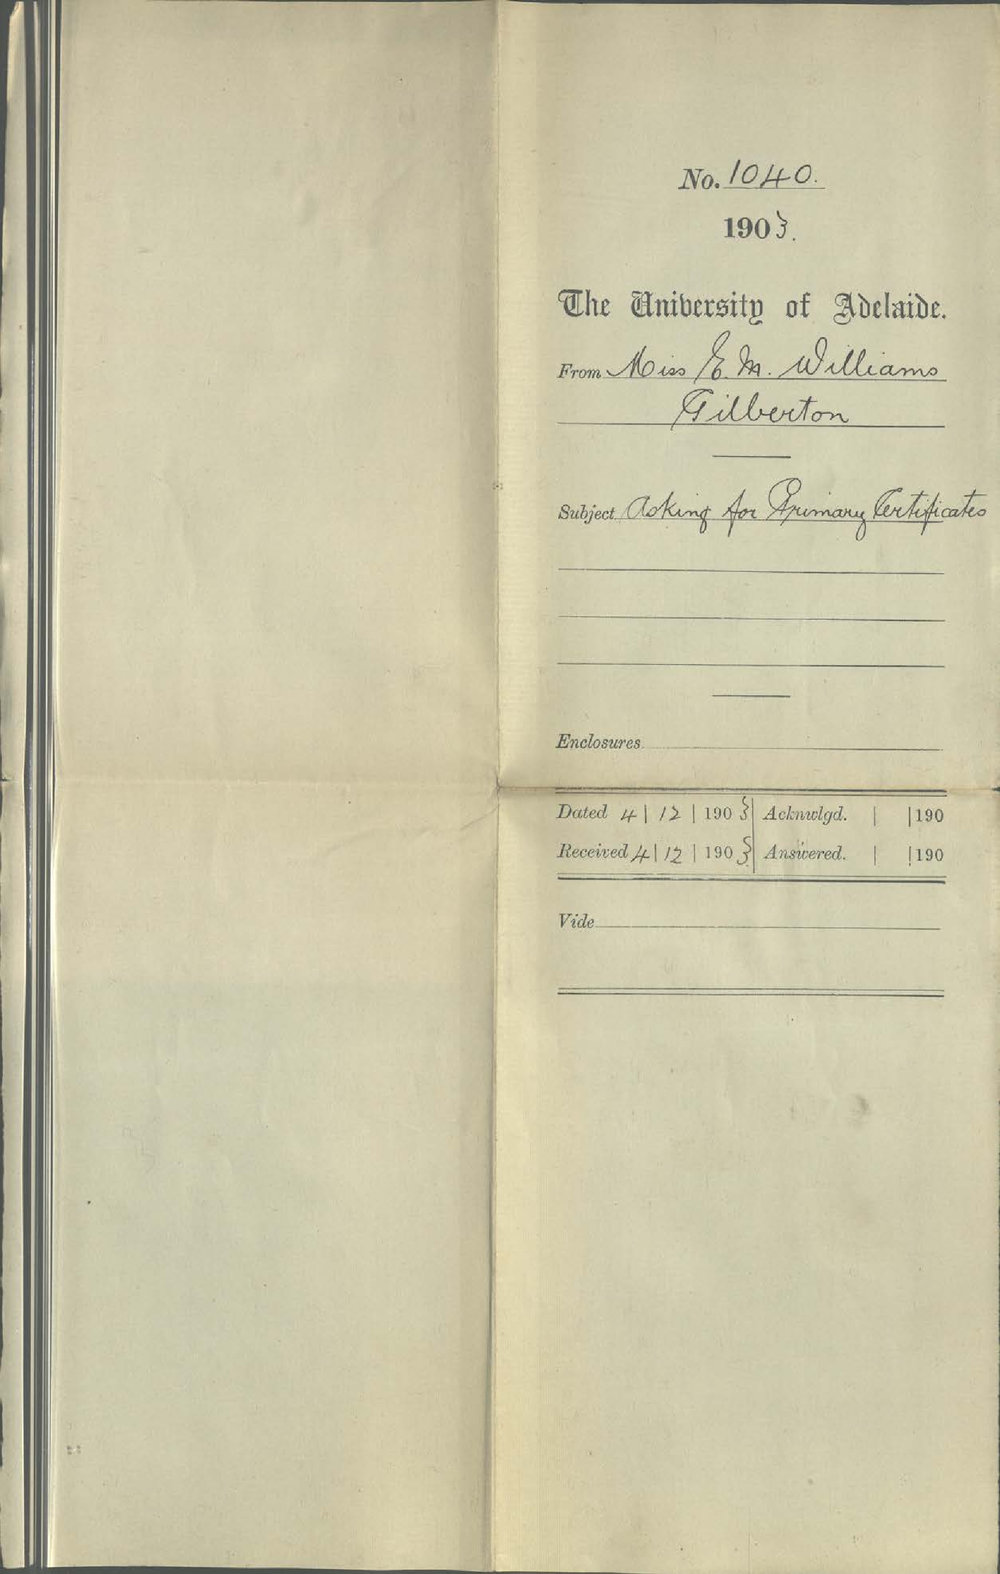 No. 1040.
1903.
The University of Adelaide.
From Miss E. M. Williams
Gilberton
Subject Asking for Primary Certificates
Enclosures
Dated 4 | 12 | 1903 Acknwlgd. | | 190
Received 4 | 12 | 1903 Answered. | | 190
Vide